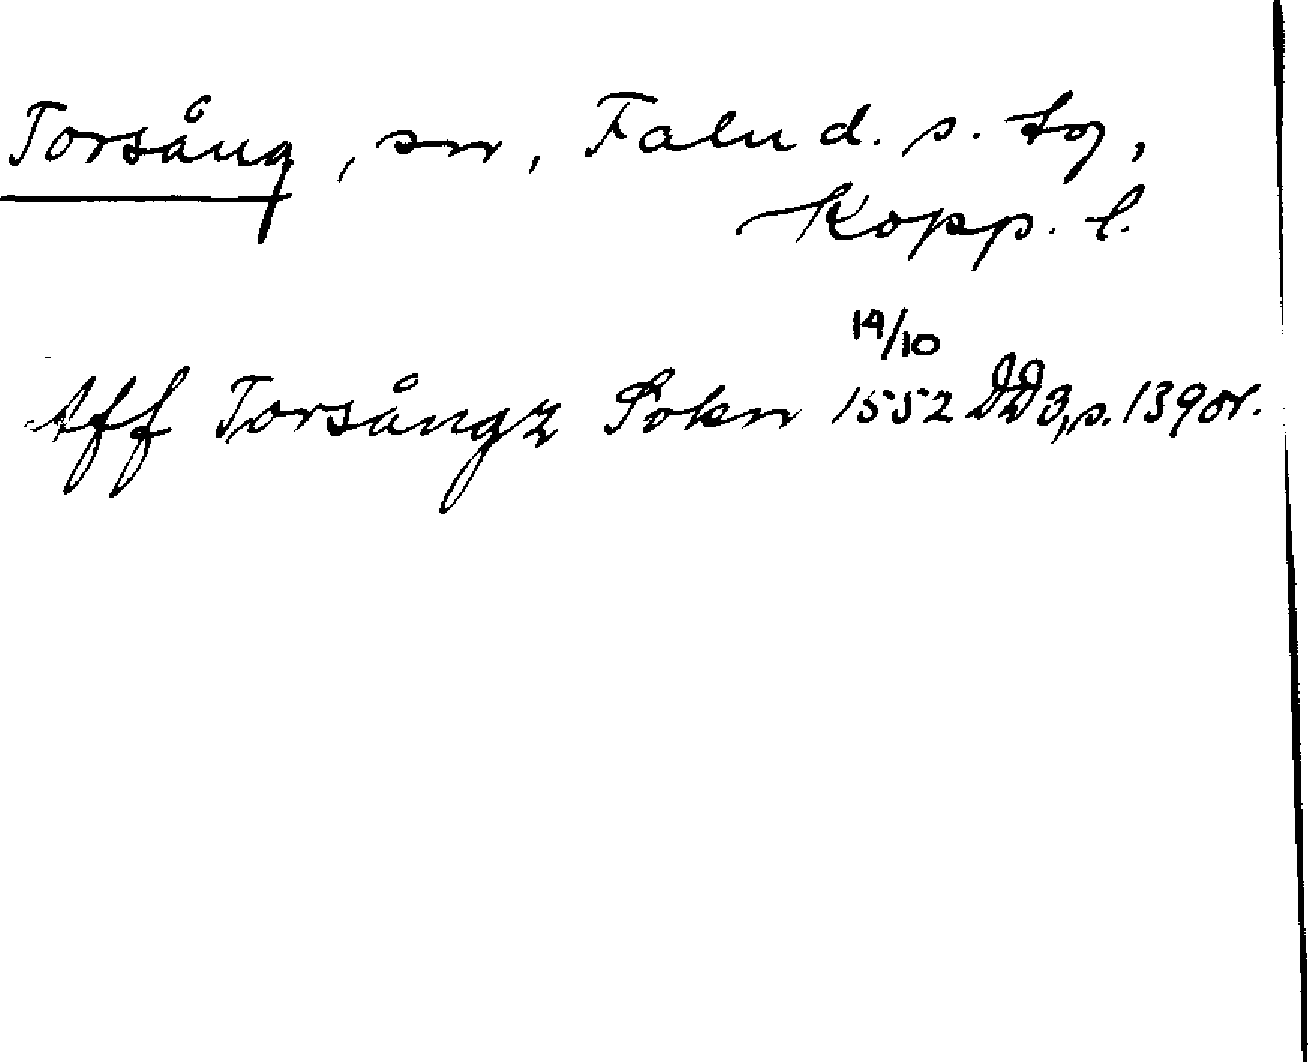 Torsång, sn, Falu d. s. tg,
Kopp. l.
14/10
Aff Torsångz Sokn 1552 DD 3, s. 139 or.